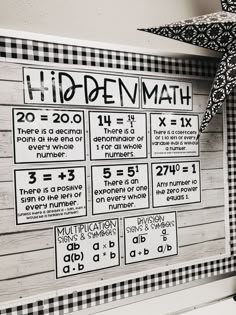 HIDDEN MATH
20 = 20.0
There is a decimal
point at the end of
every whole
number.
14 = 14/1
There is a
denominator of
1 for all whole
numbers.
x = 1x
There is a
coefficient of 1
for every
variable.
3 = +3
There is a positive
sign to the left of
every whole
number.
5 = 5¹
There is an
exponent of one for
every whole
number.
274⁰ = 1
Any number to
the zero power
equals 1.
MULTIPLICATION
SIGNS & SYMBOLS
ab a × b
a(b) a • b
a · b
DIVISION
SIGNS & SYMBOLS
a÷b a/b
a/b